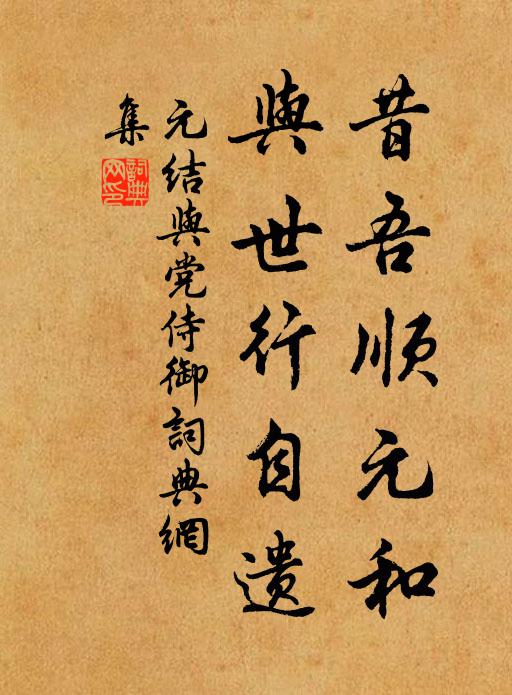 昔吾顺元和
與世行自遗
元结與党侍御詞典網
集
詞典
网印